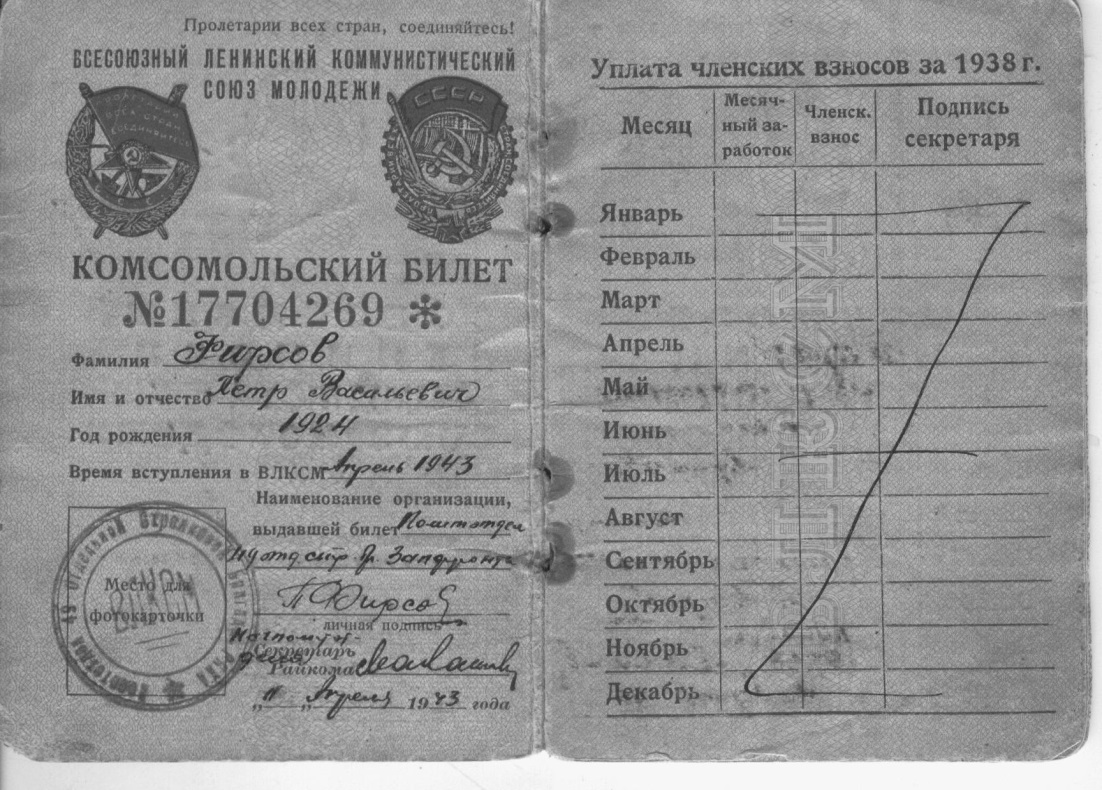 Пролетарии всех стран, соединяйтесь!
ВСЕСОЮЗНЫЙ ЛЕНИНСКИЙ КОММУНИСТИЧЕСКИЙ
СОЮЗ МОЛОДЕЖИ
СССР
КОМСОМОЛЬСКИЙ БИЛЕТ
№17704269
Фамилия Фирсов
Имя и отчество Петр Васильевич
Год рождения 1924
Время вступления в ВЛКСМ Апрель 1943
Наименование организации,
выдавшей билет Политотдел
49 отд. стр. бр. Запфронта
Место для
фотокарточки
ВЛКСМ
49 Отдельной Стрелковой Бригады
П Фирсов
личная подпись
Начполит-
отдела
Секретарь
Райкома
"11" Апреля 1943 года
Уплата членских взносов за 1938 г.
Месяц
Месяч-
ный за-
работок
Членск.
взнос
Подпись
секретаря
Январь
Февраль
Март
Апрель
Май
Июнь
Июль
Август
Сентябрь
Октябрь
Ноябрь
Декабрь